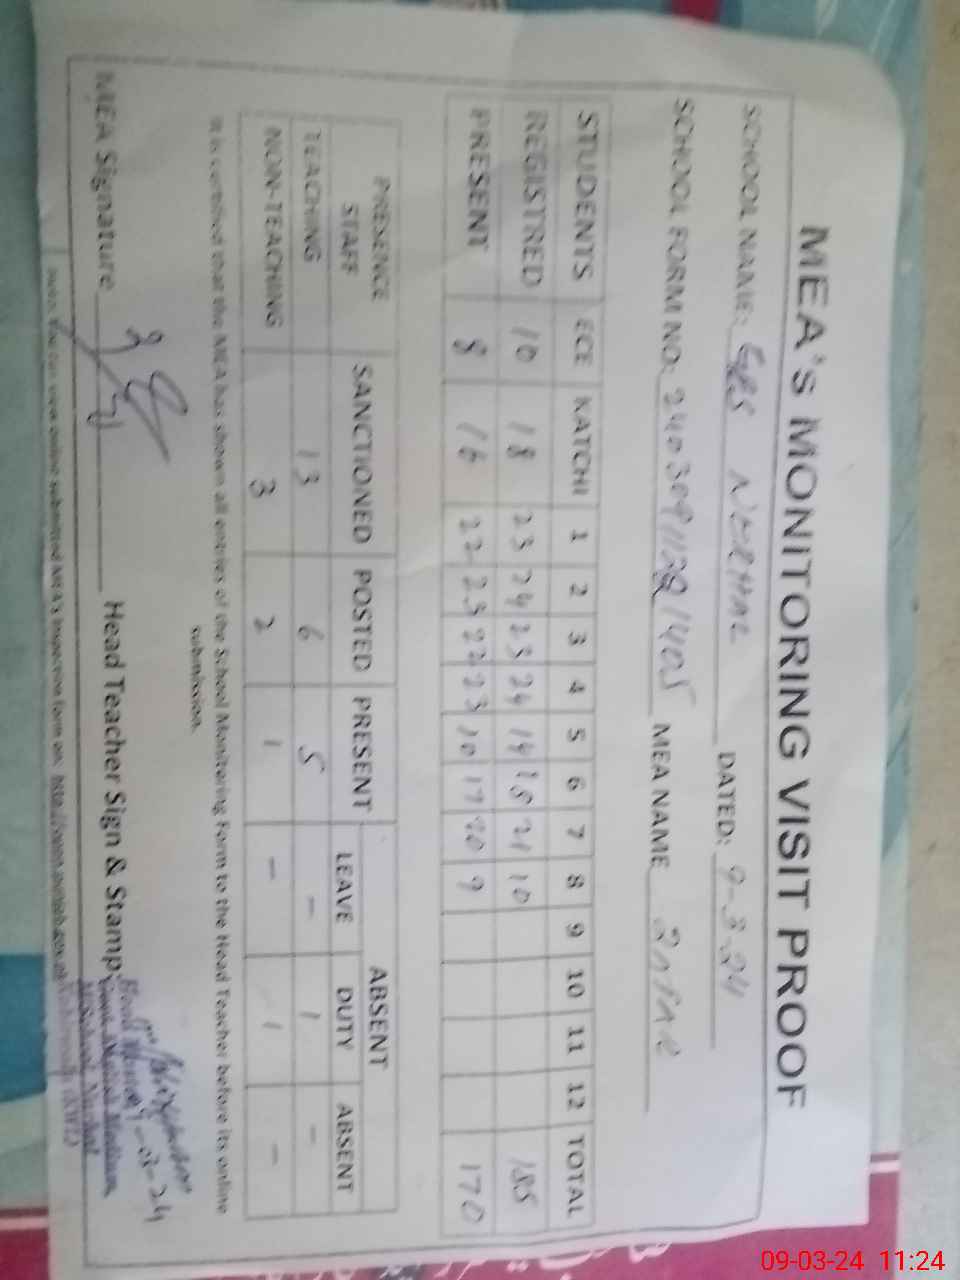 MEA's MONITORING VISIT PROOF
SCHOOL NAME: GPS DATED: 9-3-24
SCHOOL FORM NO: MEA NAME
STUDENTS ECE KATCHI 1 2 3 4 5 6 7 8 9 10 11 12 TOTAL
REGISTRED 10 18 23 24 23 24 14 18 21 10 185
PRESENT 8 16 22 23 22 23 10 17 20 9 170
PRESENCE ABSENT
STAFF SANCTIONED POSTED PRESENT LEAVE DUTY ABSENT
TEACHING 13 6 5 - 1 -
NON-TEACHING 3 2 1 - 1 -
It is certified that the MEA has shown all entries of the School Monitoring Form to the Head Teacher before its online
submission.
MEA Signature Head Teacher Sign & Stamp
Note: You can view online submitted MEA's inspection form on:
09-03-24 11:24